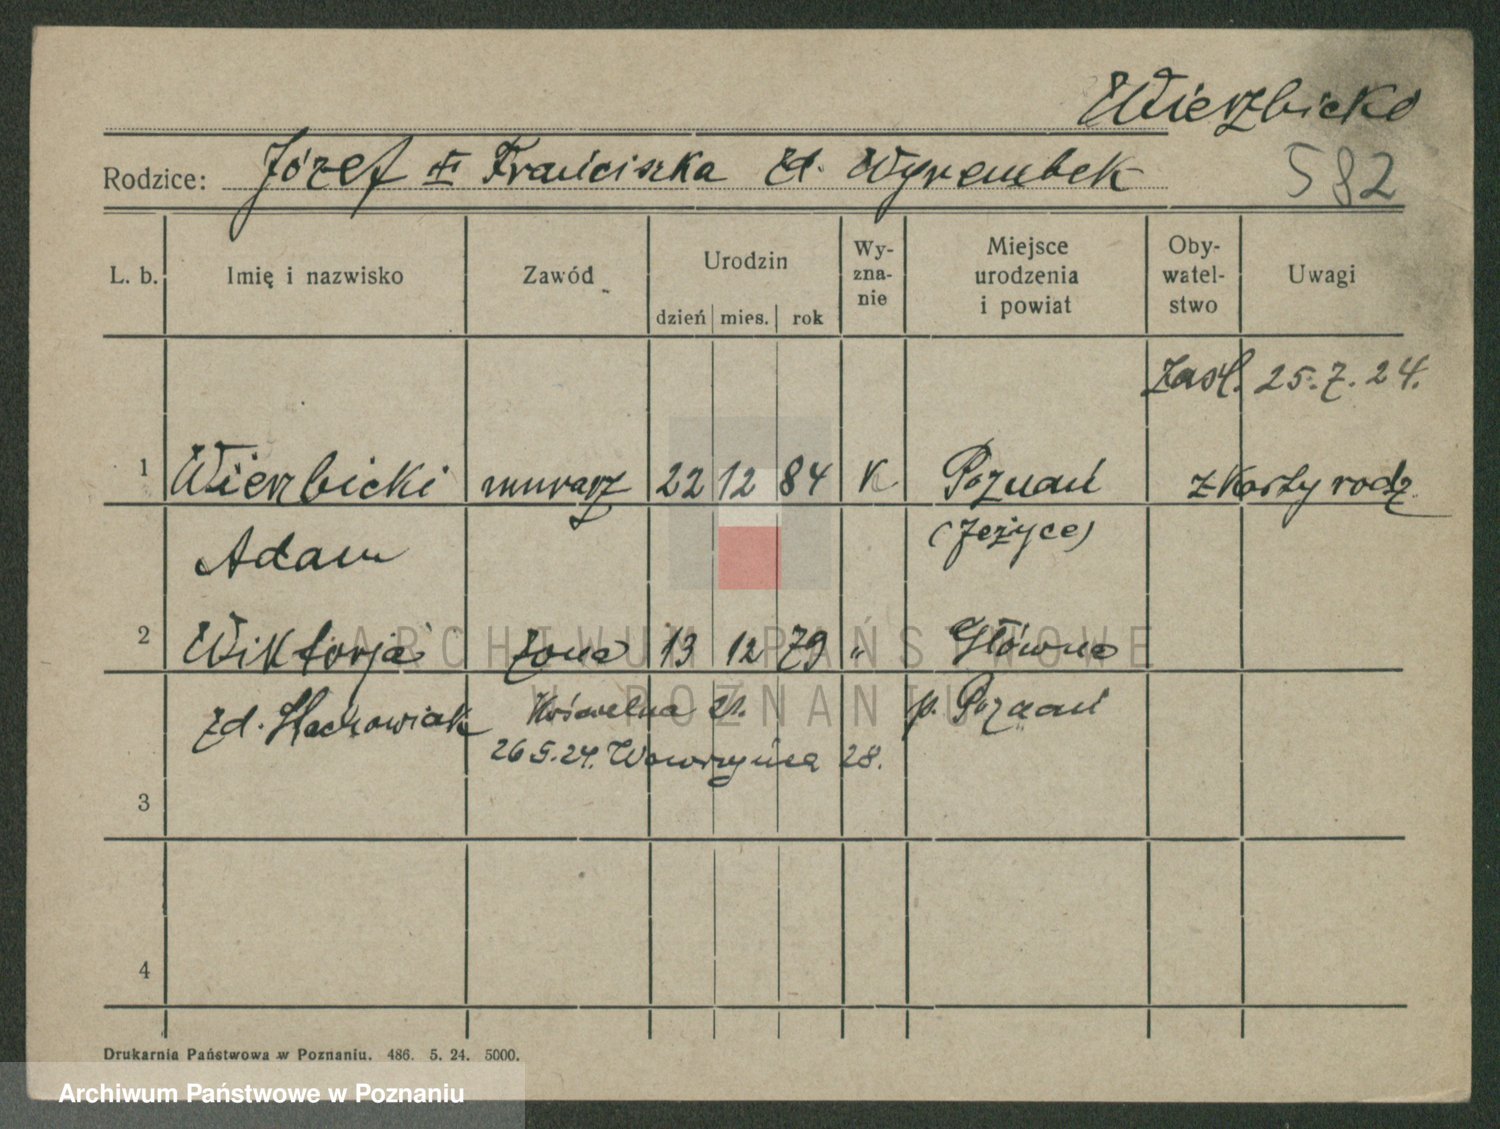 Wierzbicki
Rodzice: Józef Franciszka zd. Wyrembek
582
L. b. Imię i nazwisko Zawód Urodzin dzień mies. rok Wy-zna-nie Miejsce urodzenia i powiat Oby-watel-stwo Uwagi
25.7.24.
1 Wierzbicki murarz 22 12 84 K. Poznań z Karty rodz.
Adam (Jeżyce)
2 Wiktorja żona 13 12 79 " Główna
zd. Stachowiak 21. p. Poznań
26.5.24. Wawrzyńca 28.
3
4
ARCHIWUM PAŃSTWOWE
W POZNANIU
Drukarnia Państwowa w Poznaniu. 486. 5. 24. 5000.
Archiwum Państwowe w Poznaniu